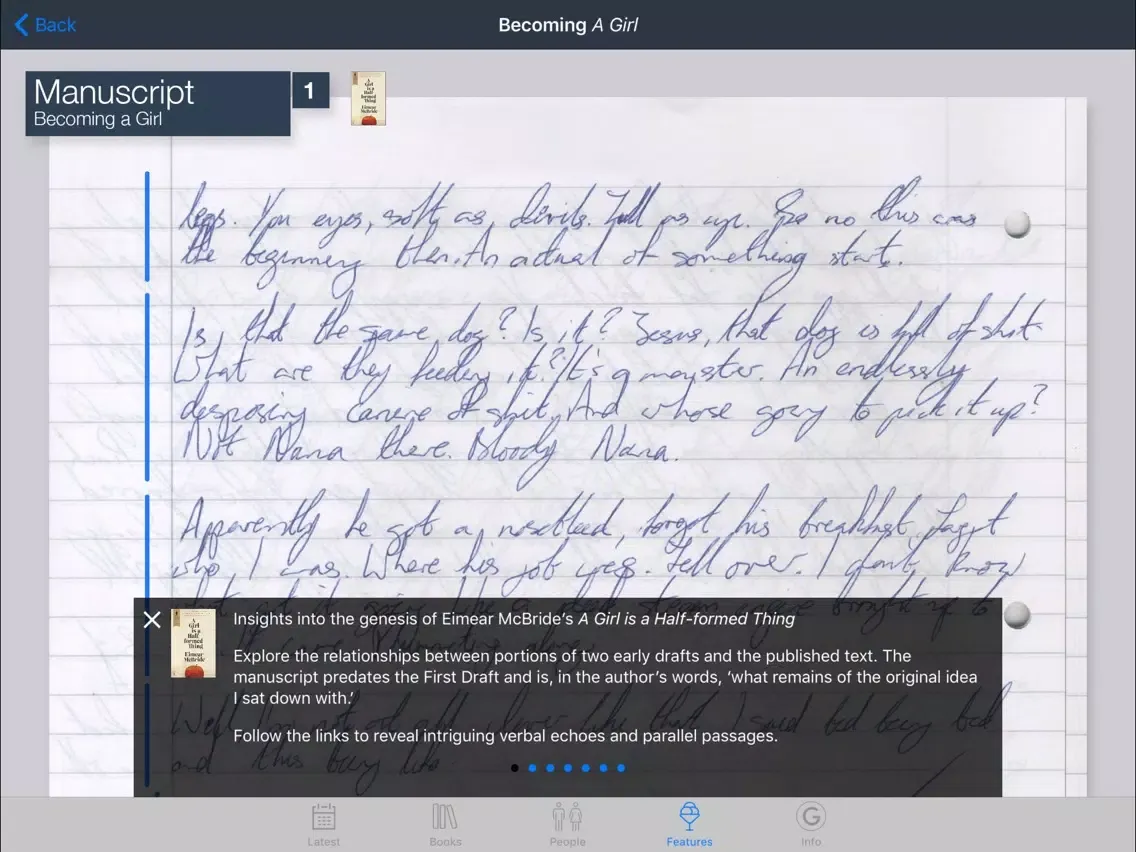 Back
Becoming A Girl
Manuscript
Becoming a Girl
1
A
Girl
is a
Half
formed
Thing
Eimear
McBride
legs. You eyes, soft as, divils. Full as up. no this was
the beginning then. An actual of something starts.
Is, that the same dog? Is it? Jesus, that dog is full of shit
What are they feeding it.? It's a monster. An endlessly
disposing canine of shit. And whose going to pick it up?
Not Nana there. Bloody Nana.
Apparently he got a nosebleed, forgot his breakfast. Forgot
who, I was. Where his job was. Fell over. I don't know
Insights into the genesis of Eimear McBride's A Girl is a Half-formed Thing
Explore the relationships between portions of two early drafts and the published text. The
manuscript predates the First Draft and is, in the author's words, 'what remains of the original idea
I sat down with.'
Follow the links to reveal intriguing verbal echoes and parallel passages.
I said bed being bed
and this being like
Latest
Books
People
Features
Info